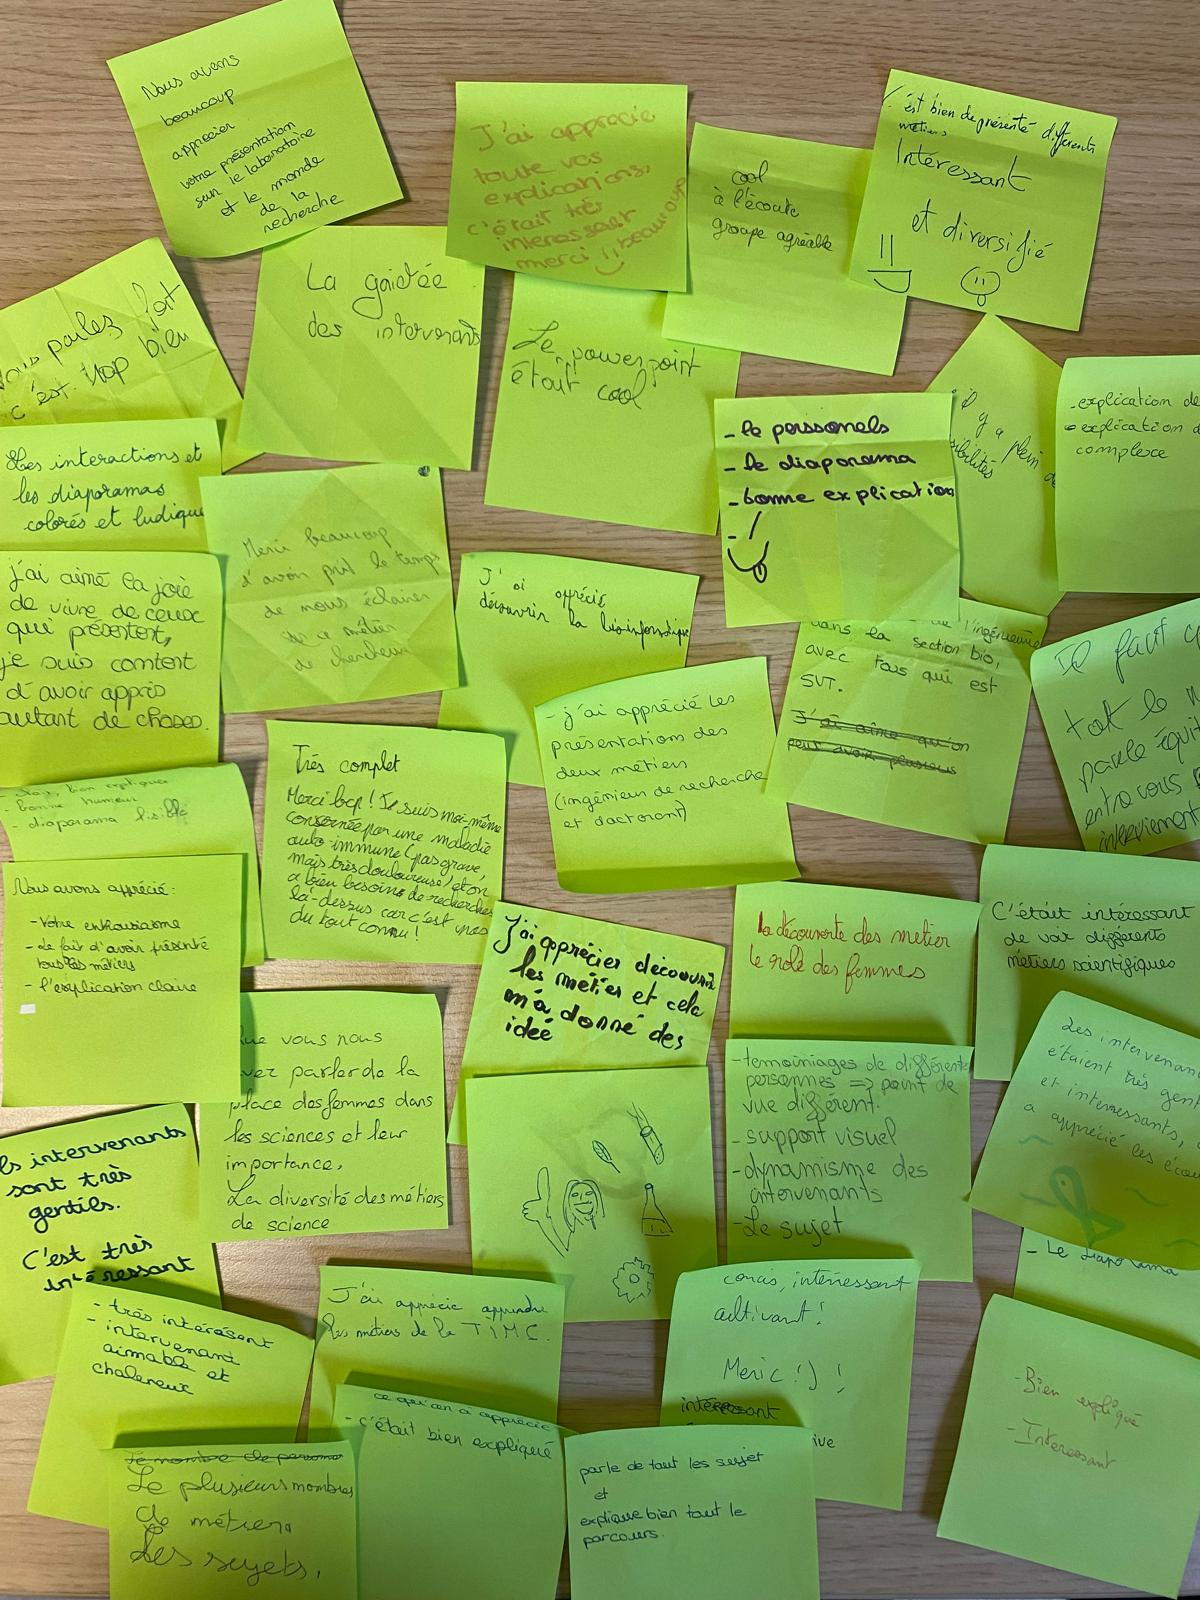 Nous avons
beaucoup
apprecier
votre présentation
sur le laboratoire
et le monde
de la
recherche
J'ai apprécié
toute vos
explications,
c'était très
interessant
merci !! beaucoup
cool
à l'écoute
groupe agréable
C'est bien de présenté différents
métiers
Intéressant
et diversifié
Vous parlez fort
c'est trop bien
La gaietée
des intervenants
Le powerpoint
était cool
- le personels
- le diaporama
- bonne explication
-
il y a plein
- explication de
- explication d
complexe
Les interactions et
les diaporamas
colorés et ludique
Merci beaucoup
d'avoir prit le temps
de nous éclairer
sur ce métier
de chercheur
j'ai aimé la joie
de vivre de ceux
qui présentent,
je suis content
d'avoir appris
autant de choses.
J'ai apprécié
découvrir la bio-informatique
- j'ai apprécié les
présentations des
deux métiers
(ingénieur de recherche
et doctorant)
l'ingénieurie
dans la section bio,
avec tous qui est
SVT.
J'ai aimé qu'on
peut avoir plusieurs
Il faut
tout le
parle équi
entre vous
interviement
bien expliquer
- bonne humeur
- diaporama lisible
Très complet
Merci bcp ! Je suis moi-même
concernée par une maladie
auto immune (pas grave,
mais très douloureuse) et on
a bien besoin de recherches
là-dessus car c'est pas
du tout connu !
Nous avons apprécié :
- Votre enthousiasme
- Le fait d'avoir présenté
tous les métiers
- l'explication claire
j'ai apprécier découvrir
les métier et cela
m'a donné des
idée
la découverte des metier
le role des femmes
C'était intéressant
de voir différents
métiers scientifiques
que vous nous
avez parler de la
place des femmes dans
les sciences et leur
importance,
La diversité des métiers
de science
- temoiniages de différente
personnes => point de
vue différent.
- support visuel
- dynamisme des
intervenants
- Le sujet
Les intervenants
étaient très gent
et interressants,
a apprécié les écou
- Le diaporama
Ils intervenants
sont très
gentils.
C'est très
intéressant
- très intérésent
- intervenant
aimable et
chalereux
J'ai apprécié apprendre
les métiers de la TIMC.
concis, intéressant
Meric !) !
intéressant
ive
- Bien expliqué
- Interessant
ce qu'on a apprécié
- c'était bien expliquié
Le nombre de personne
Le plusieurs nombres
de métiers
Les sujets,
parle de tout les sujet
et
explique bien tout le
parcours.